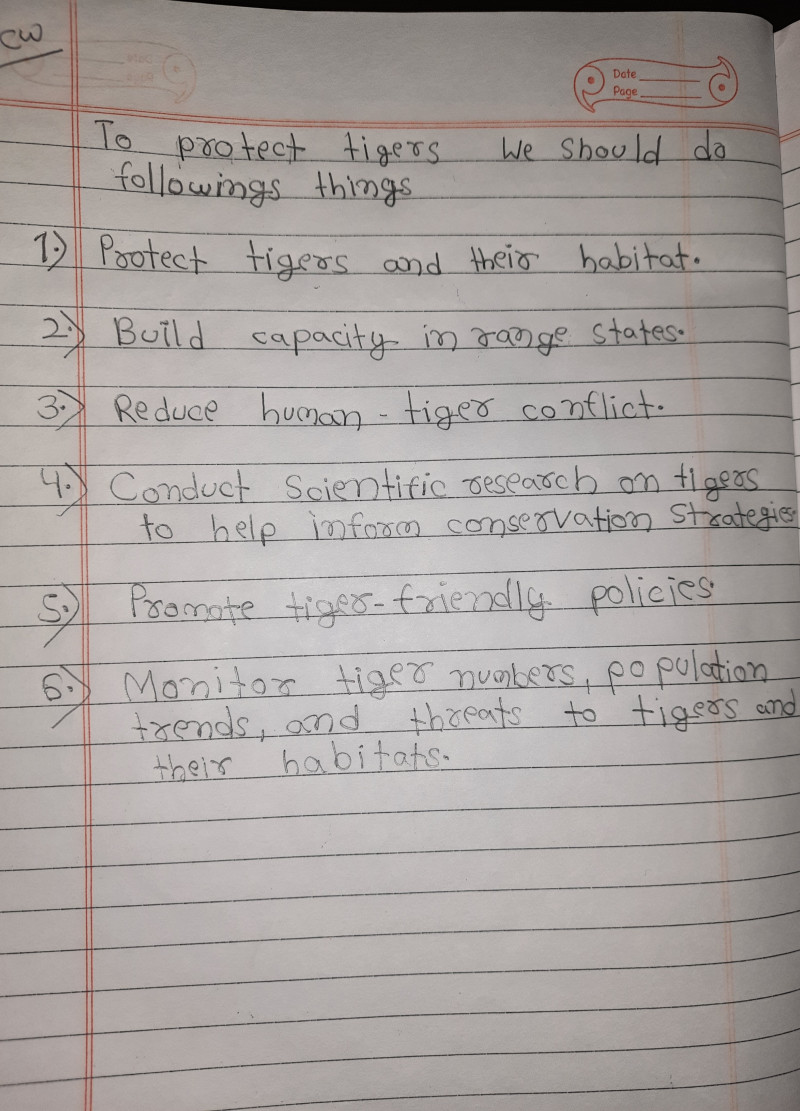 CW
Date
Page
To protect tigers We should do
followings things
1.) Protect tigers and their habitat.
2.) Build capacity in range states.
3.) Reduce human-tiger conflict.
4.) Conduct Scientific research on tigers
to help inform conservation Strategies
5.) Promote tiger-friendly policies.
6.) Monitor tiger numbers, population
trends, and threats to tigers and
their habitats.